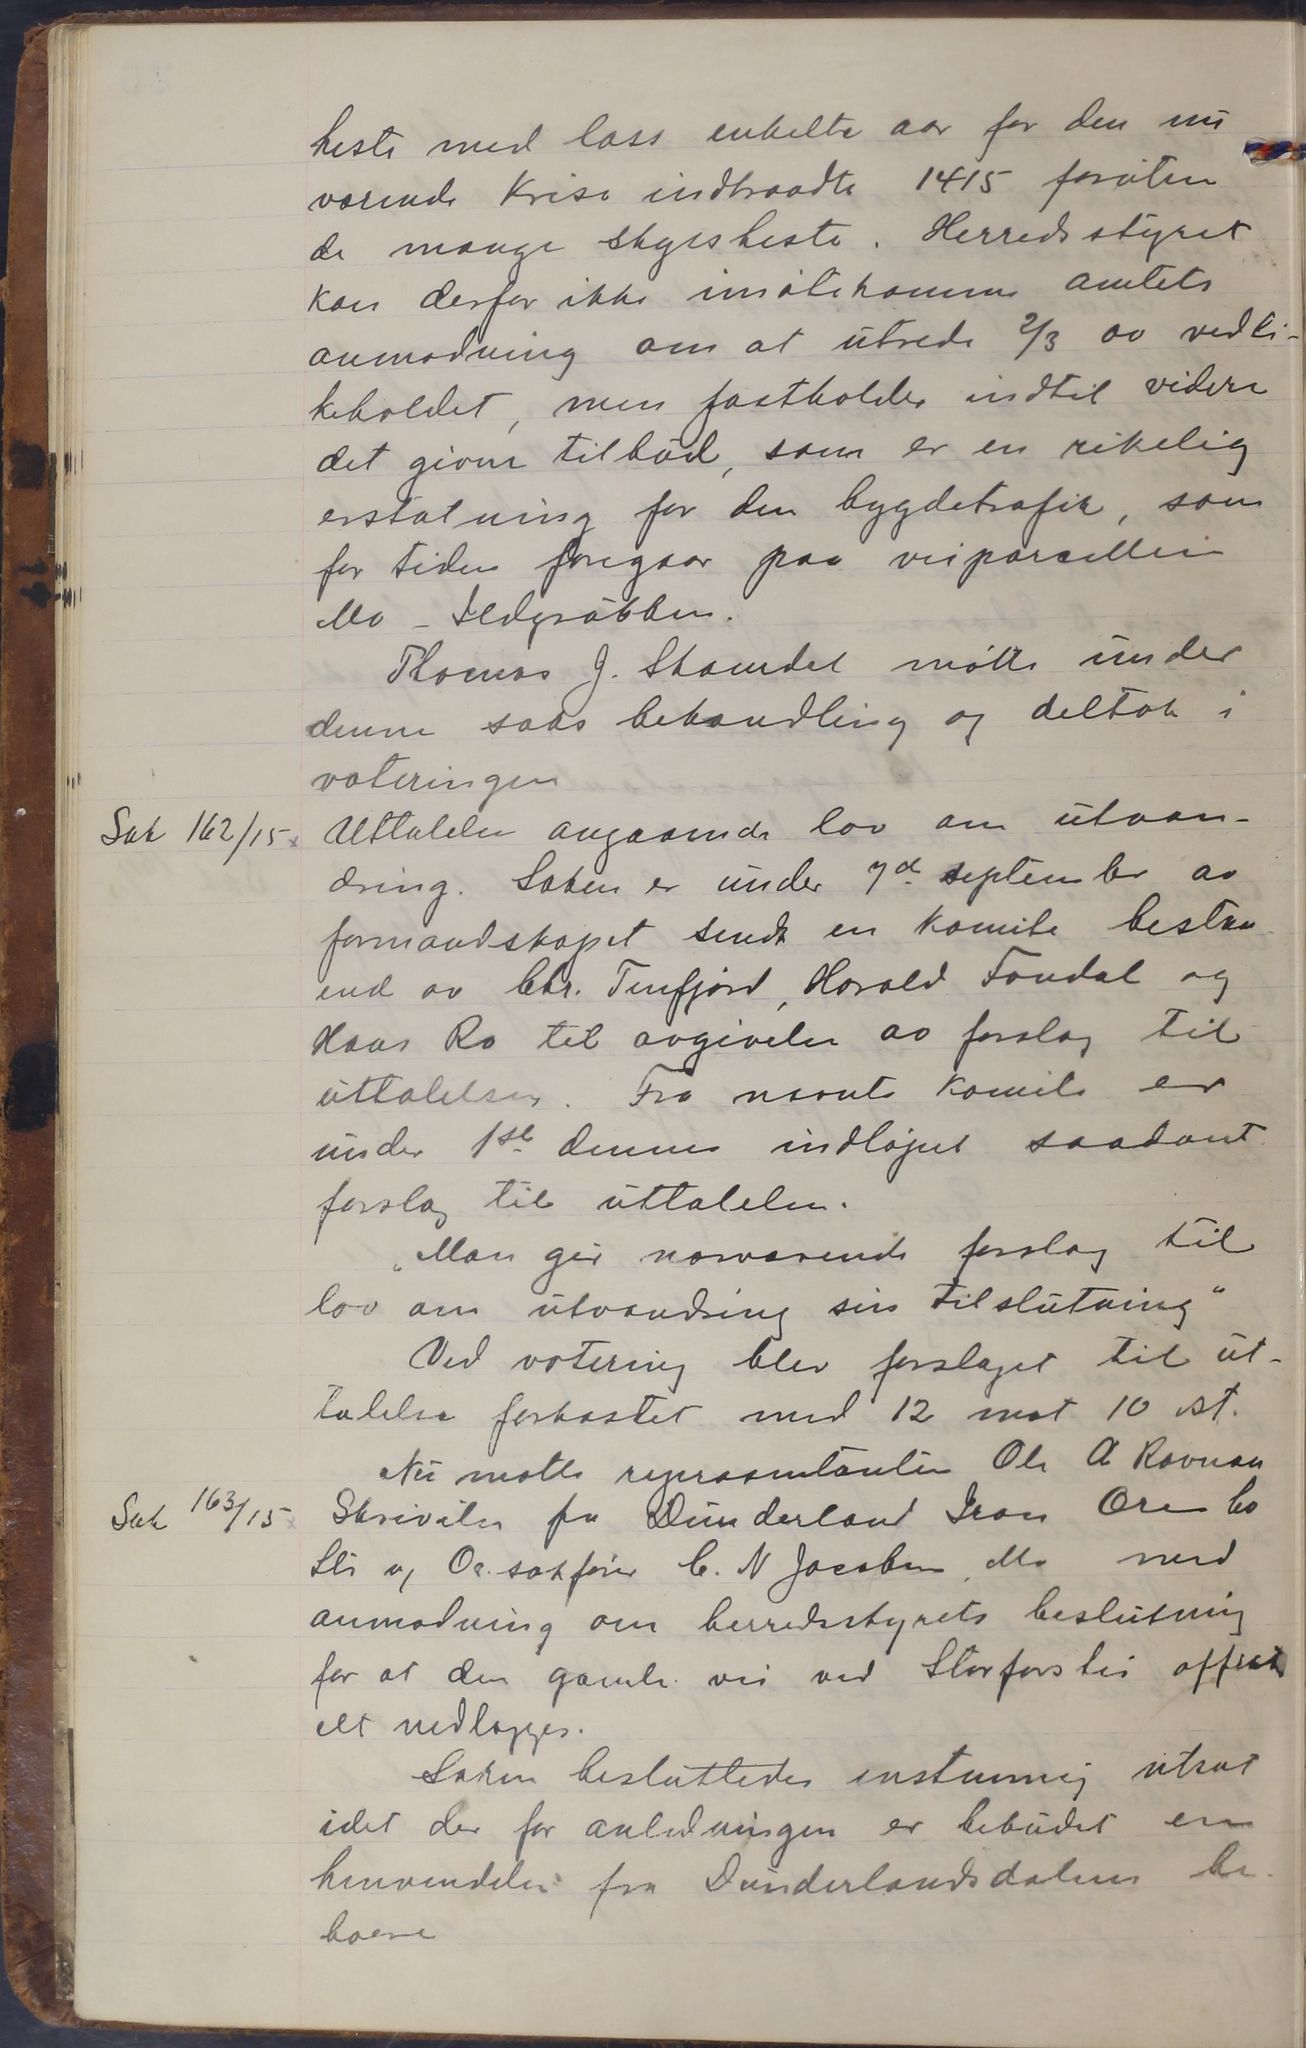 heste med lass enkelte aar før den nu
værende Krise indtraadte 1415 foruten
de mange skysheste. Herredsstyret
kan derfor ikke imøtekomme amtets
anmodning om at utrede 2/3 av vedli-
keholdet, men fastholder indtil videre
det givne tilbud, som er en rikelig
erstatning for den bygdetrafik, som
for tiden foregaar paa veiparsellen
Mo - Ildgrubben.
Thomas J. Skamdal møtte under
denne saks behandling og deltok i
voteringen
Sak 162/15 Uttalelse angaaende lov om utvan-
dring. Saken er under 7de september av
formandskapet sendt en komite bestaa
end av Chr. Tenfjord, Harald Fondal og
Hans Ro til avgivelse av forslag til
uttalelse. Fra nævnte komite er
under 1ste dennes indløpet saadant
forslag til uttalelse.
"Man gir nærværende forslag til
lov om utvandring sin tilslutning"
Ved votering blev forslaget til ut-
talelse forkastet med 12 mot 10 st.
Nu møtte repræsentanten Ole A Ravnaa
Sak 163/15 Skrivelse fra Dunderland Iron Ore Co
Ltd v, Or. sakfører C. N Jacobsen, Mo med
anmodning om herredsstyrets beslutning
for at den gamle vei ved Storforshei offici
elt nedlægges.
Saken besluttedes enstemmig utsat
idet der for anledningen er bebudet en
henvendelse fra Dunderlandsdalens be-
boere